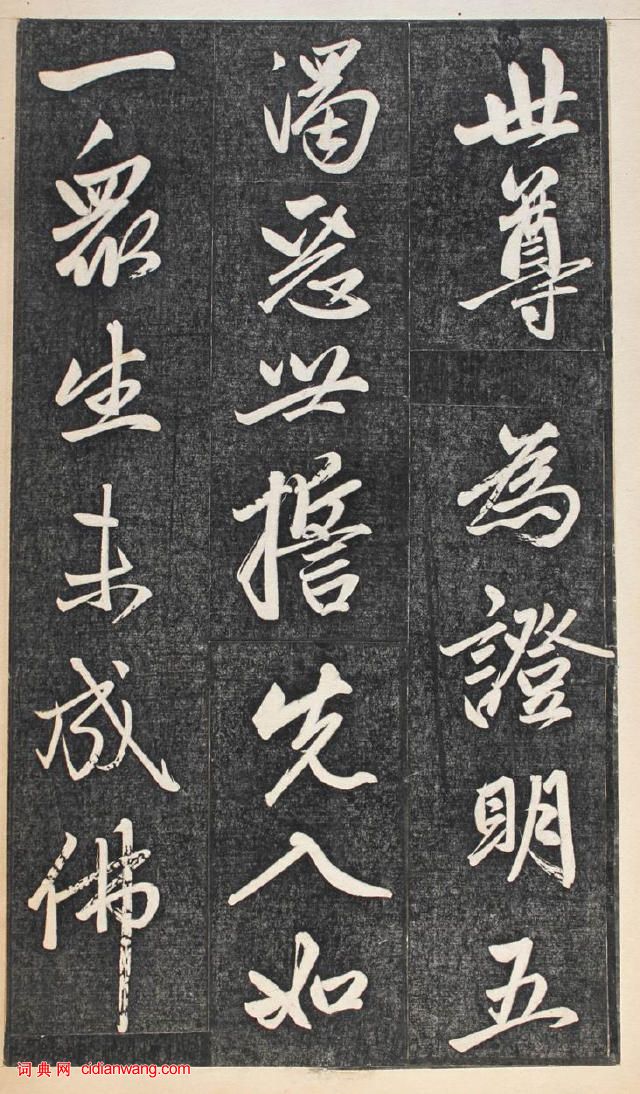 世尊為證明五
濁惡世誓先入如
一衆生未成佛
词典网 cidianwang.com